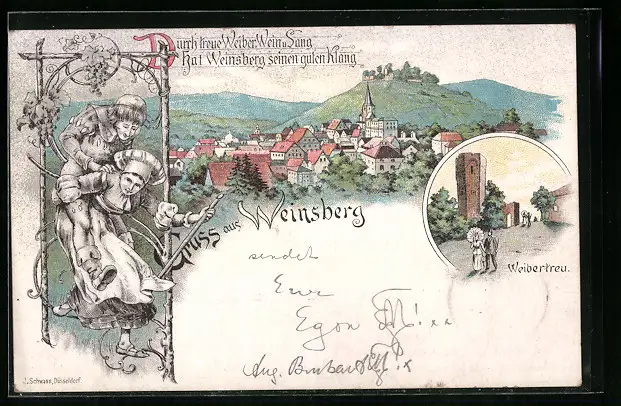 Durch treue Weiber, Wein u. Sang
Hat Weinsberg seinen guten Klang
Gruss aus Weinsberg
Weibertreu.
sendet
Euer
Egon
Aug.
J. Schwann, Düsseldorf